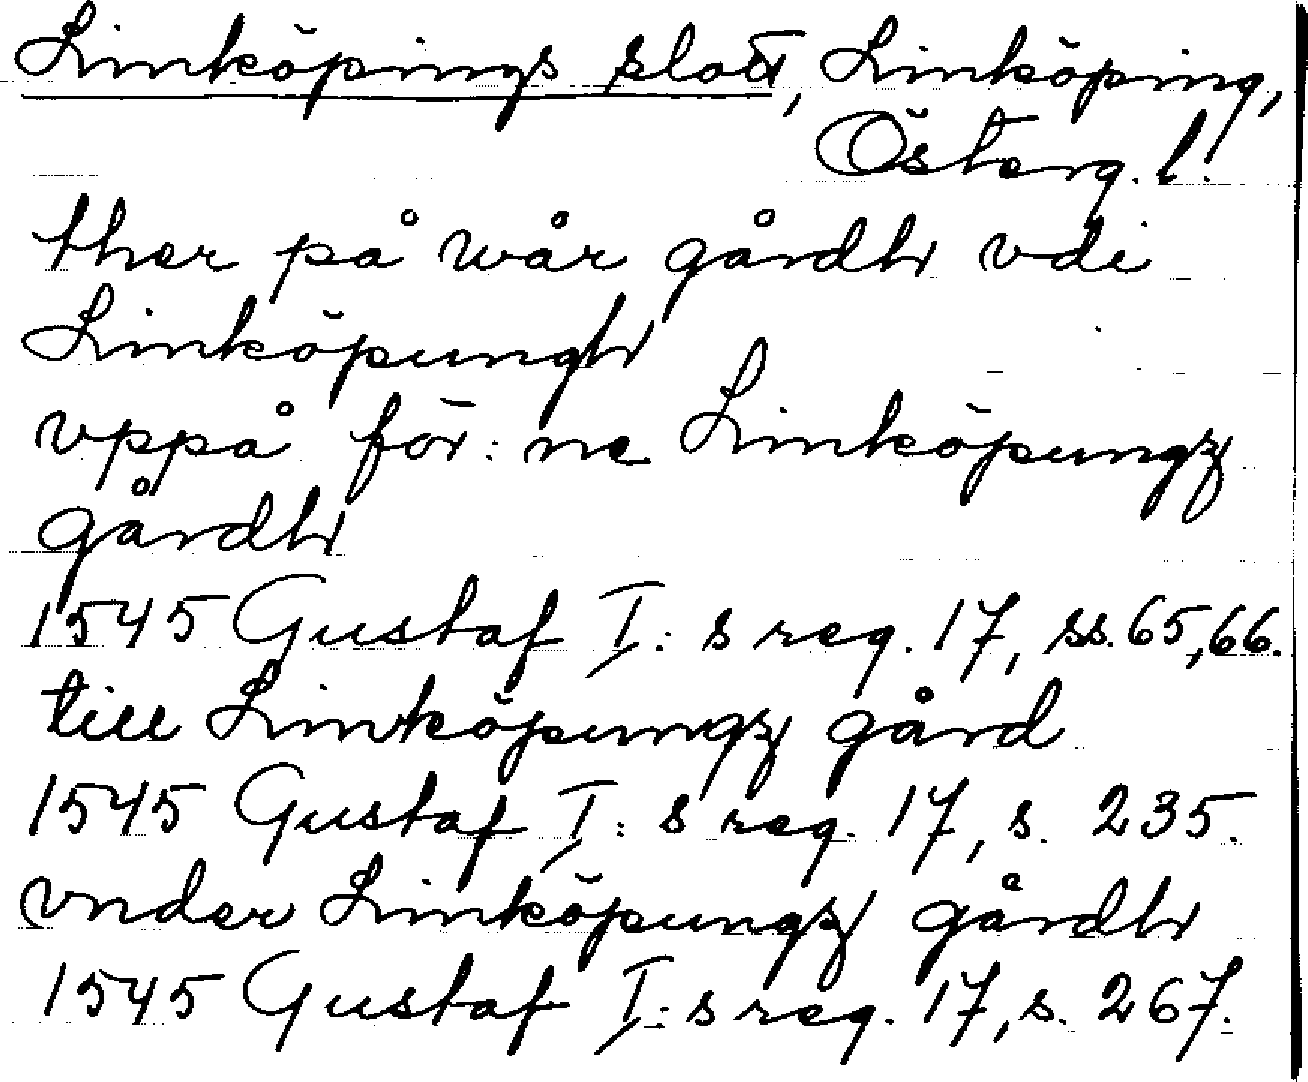 Linköpings slott, Linköping,
Österg. l.
ther på wår gårdh vdi
Linköpungh
vppå för: ne Linköpungz
gårdh
1545 Gustaf I: s reg. 17, ss. 65, 66.
till Linköpungz gård
1545 Gustaf I: s reg. 17, s. 235.
vnder Linköpungz gårdh
1545 Gustaf I: s reg. 17, s. 267.